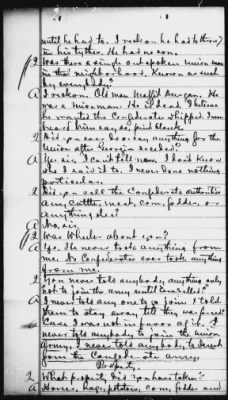 until he had to. I reckon he had to throw
in his tythe. He had no son.
Q Was there a single outspoken Union man
in the neighborhood. Known as such
by everybody?
A I reckon. Old man Moffit Duncan. He
was a Union man. He is dead. I believe
he wanted the Confederates whipped. I even
heard him say so, point blank.
Q Did you ever do or say anything for the
Union after Georgia seceded?
A Yes sir. I can't tell now. I don't know
who I said it to. I never done nothing
particular.
Q Did you sell the Confederate authorities
any cattle, meat, corn, fodder, or
anything else?
A No, sir.
Q Was Wheeler about you?
A Yes. He never took anything from
me. No Confederates ever took anything
from me.
Q You never told anybody anything only
not to join the army until compelled?
A I never told any one to join. I told
them to stay away till they was forced
Case I was not in favor of it. I
never told anybody to join the Union
Army. I never told anybody to desert
from the Confederate army.
Property.
Q What property did you have taken?
A Horses, hogs, potatoes, corn, fodder and